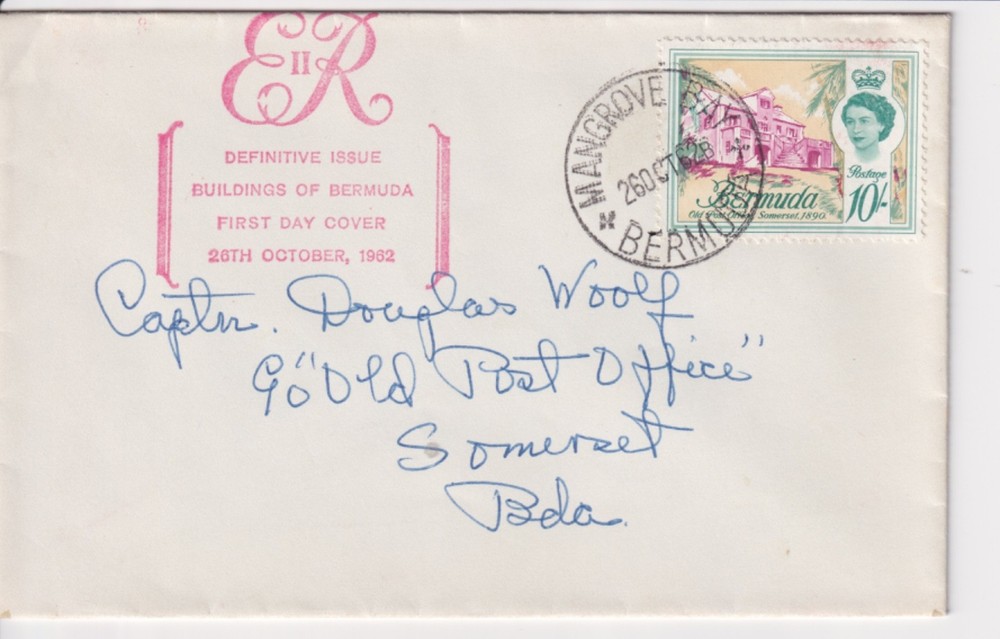 E II R
DEFINITIVE ISSUE
BUILDINGS OF BERMUDA
FIRST DAY COVER
26TH OCTOBER, 1962
MANGROVE BAY
26 OCT 62 B
BERMUDA
Postage
10/-
Bermuda
Old Post Office, Somerset, 1890.
Captn. Douglas Woolf
c/o "Old Post Office"
Somerset
Bda.